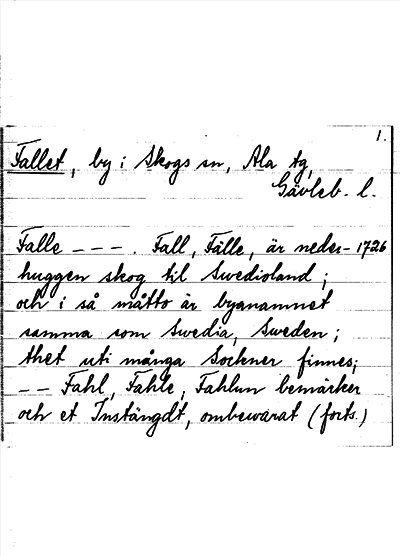 1.
Fallet, by i Skogs sn, Ala tg,
Gävleb. l.
Falle --- . Fall, Fälle, är neder- 1726
huggen skog til Swedioland;
och i så måtto är byanamnet
samma som Swedia, Sweden;
thet uti många Sochner finnes;
-- Fahl, Fahle, Fahlun bemärker
och et Instängdt, ombewarat (forts.)